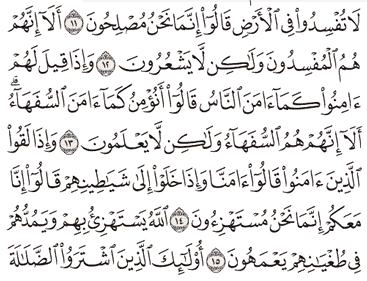 لَا تُفْسِدُوا۟ فِى ٱلْأَرْضِ قَالُوٓا۟ إِنَّمَا نَحْنُ مُصْلِحُونَ ١١ أَلَآ إِنَّهُمْ
هُمُ ٱلْمُفْسِدُونَ وَلَٰكِن لَّا يَشْعُرُونَ ١٢ وَإِذَا قِيلَ لَهُمْ
ءَامِنُوا۟ كَمَآ ءَامَنَ ٱلنَّاسُ قَالُوٓا۟ أَنُؤْمِنُ كَمَآ ءَامَنَ ٱلسُّفَهَآءُ ۗ
أَلَآ إِنَّهُمْ هُمُ ٱلسُّفَهَآءُ وَلَٰكِن لَّا يَعْلَمُونَ ١٣ وَإِذَا لَقُوا۟
ٱلَّذِينَ ءَامَنُوا۟ قَالُوٓا۟ ءَامَنَّا وَإِذَا خَلَوْا۟ إِلَىٰ شَيَٰطِينِهِمْ قَالُوٓا۟ إِنَّا
مَعَكُمْ إِنَّمَا نَحْنُ مُسْتَهْزِءُونَ ١٤ ٱللَّهُ يَسْتَهْزِئُ بِهِمْ وَيَمُدُّهُمْ
فِى طُغْيَٰنِهِمْ يَعْمَهُونَ ١٥ أُو۟لَٰٓئِكَ ٱلَّذِينَ ٱشْتَرَوُا۟ ٱلضَّلَٰلَةَ